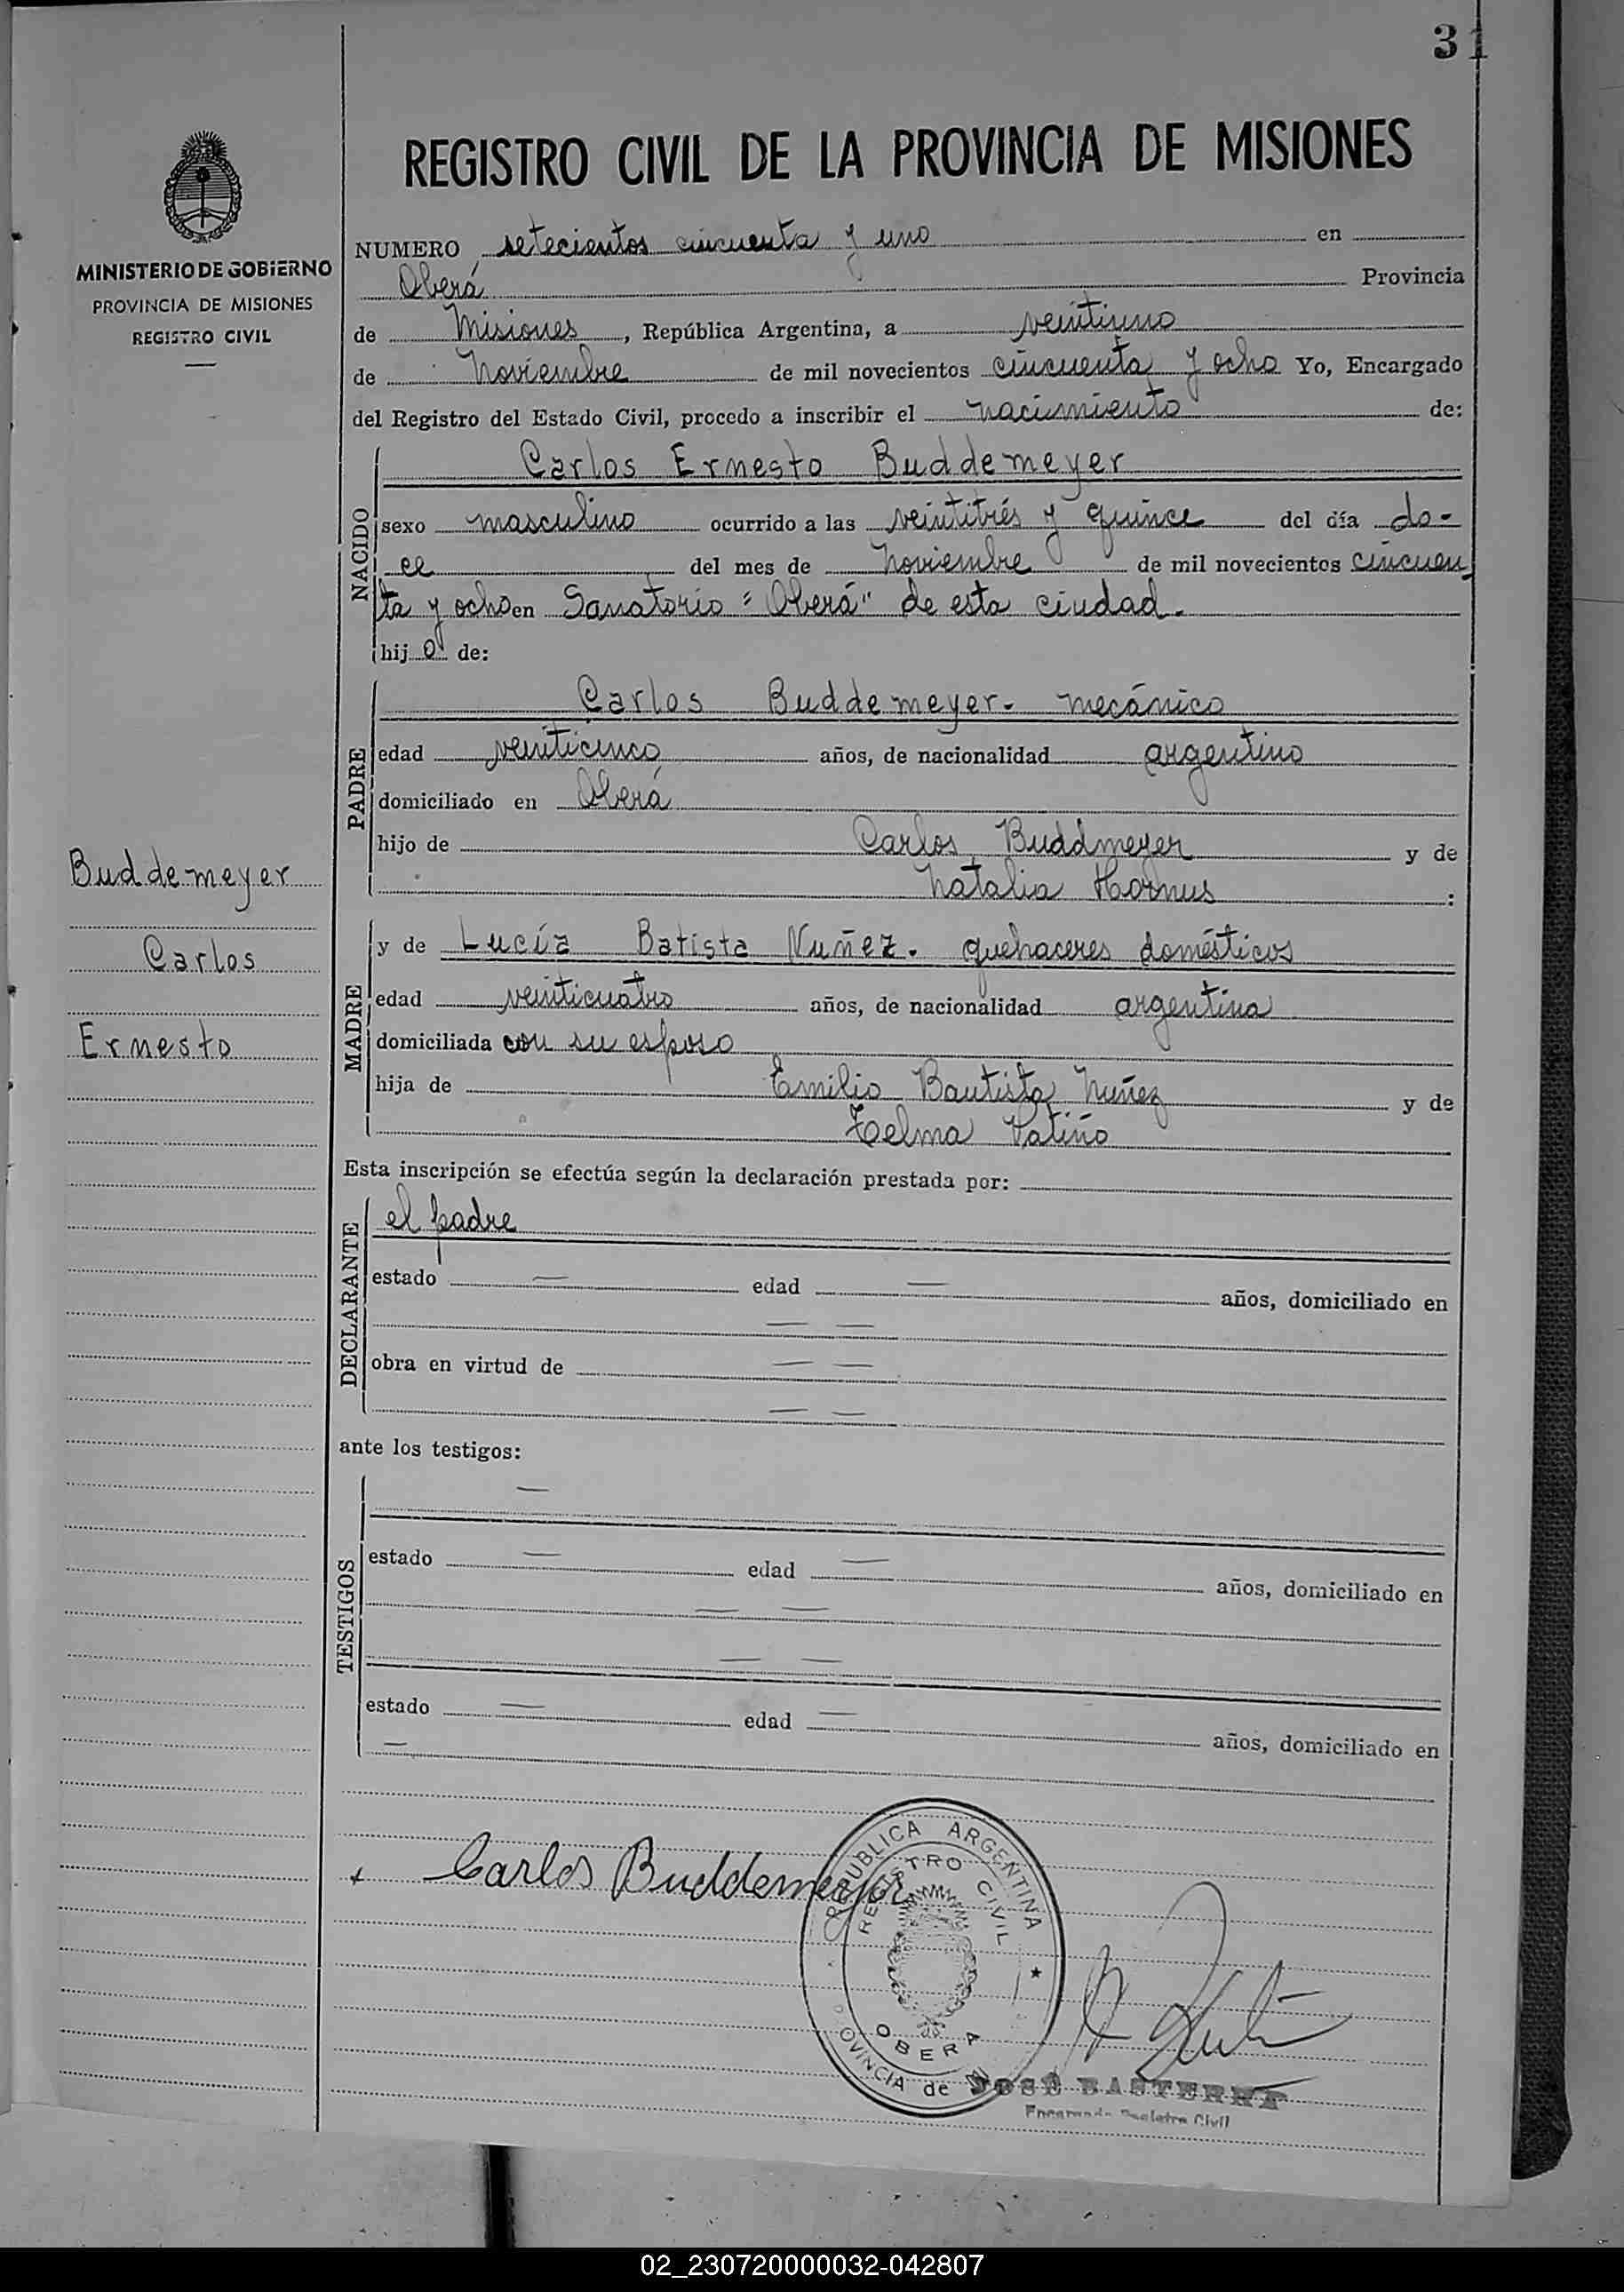 31
REGISTRO CIVIL DE LA PROVINCIA DE MISIONES
MINISTERIO DE GOBIERNO
PROVINCIA DE MISIONES
REGISTRO CIVIL
NUMERO setecientos cincuenta y uno en
Oberá Provincia
de Misiones, República Argentina, a veintiuno
de Noviembre de mil novecientos cincuenta y ocho Yo, Encargado
del Registro del Estado Civil, procedo a inscribir el nacimiento de:
NACIDO
Carlos Ernesto Buddemeyer
sexo masculino ocurrido a las veintitrés y quince del día do-
ce del mes de Noviembre de mil novecientos cincuen
ta y ocho en Sanatorio "Oberá" de esta ciudad.
hijo de:
PADRE
Carlos Buddemeyer- mecánico
edad veinticinco años, de nacionalidad argentino
domiciliado en Oberá
hijo de Carlos Buddmeyer y de
Natalia Hornus :
Buddemeyer
Carlos
Ernesto
MADRE
y de Lucía Batista Nuñez. quehaceres domésticos
edad veinticuatro años, de nacionalidad argentina
domiciliada con su esposo
hija de Emilio Bautista Nuñez y de
Telma Patiño
Esta inscripción se efectúa según la declaración prestada por:
DECLARANTE
el padre
estado — edad — años, domiciliado en
— —
obra en virtud de — —
— —
ante los testigos:
TESTIGOS
—
estado — edad — años, domiciliado en
— —
— —
estado — edad — años, domiciliado en
—
Carlos Buddemeyer
REPUBLICA ARGENTINA
REGISTRO CIVIL
OBERA
PROVINCIA de
JOSÉ
Encargado Registro Civil
02_230720000032-042807